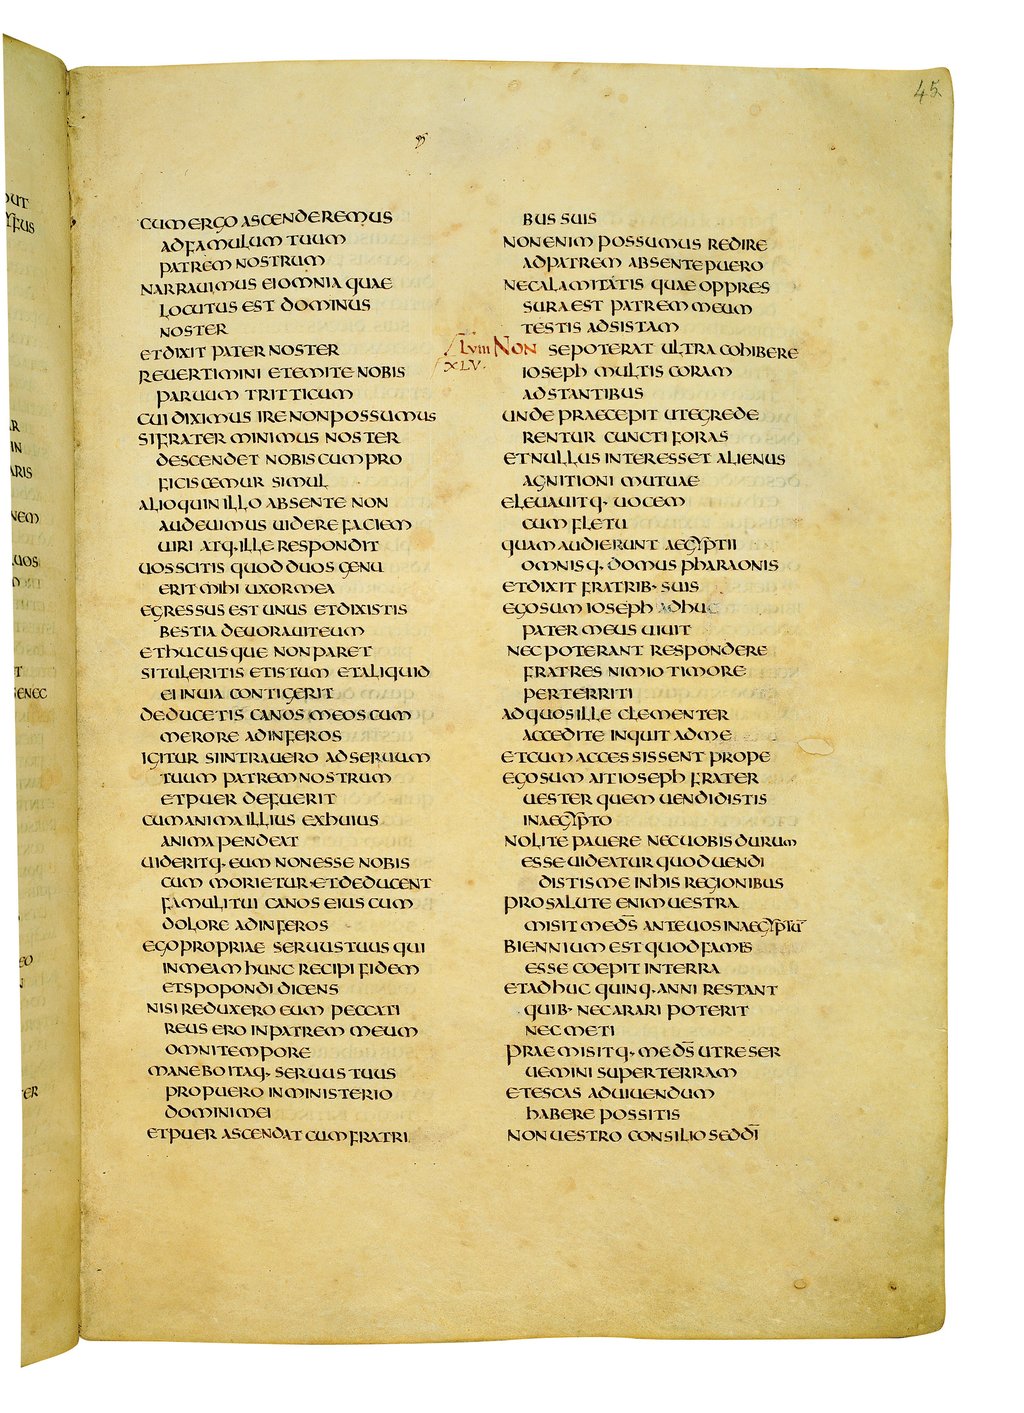 45
CUM ERGO ASCENDEREMUS
AD FAMULUM TUUM
PATREM NOSTRUM
NARRAUIMUS EI OMNIA QUAE
LOCUTUS EST DOMINUS
NOSTER
ET DIXIT PATER NOSTER
REUERTIMINI ET EMITE NOBIS
PARUUM TRITTICUM
CUI DIXIMUS IRE NON POSSUMUS
SI FRATER MINIMUS NOSTER
DESCENDET NOBISCUM PRO
FICISCEMUR SIMUL
ALIOQUIN ILLO ABSENTE NON
AUDEUIMUS UIDERE FACIEM
UIRI ATQ· ILLE RESPONDIT
UOS SCITIS QUOD DUOS GENU
ERIT MIHI UXOR MEA
EGRESSUS EST UNUS ET DIXISTIS
BESTIA DEUORAUIT EUM
ET HUCUSQUE NON PARET
SI TULERITIS ET ISTUM ET ALIQUID
EI IN UIA CONTIGERIT
DEDUCETIS CANOS MEOS CUM
MERORE AD INFEROS
IGITUR SI INTRAUERO AD SERUUM
TUUM PATREM NOSTRUM
ET PUER DEFUERIT
CUM ANIMA ILLIUS EX HUIUS
ANIMA PENDEAT
UIDERITQ· EUM NON ESSE NOBIS
CUM MORIETUR· ET DEDUCENT
FAMULI TUI CANOS EIUS CUM
DOLORE AD INFEROS
EGO PROPRIAE SERUUS TUUS QUI
IN MEAM HUNC RECIPI FIDEM
ET SPOPONDI DICENS
NISI REDUXERO EUM PECCATI
REUS ERO IN PATREM MEUM
OMNI TEMPORE
MANEBO ITAQ· SERUUS TUUS
PRO PUERO IN MINISTERIO
DOMINI MEI
ET PUER ASCENDAT CUM FRATRI
BUS SUIS
NON ENIM POSSUMUS REDIRE
AD PATREM ABSENTE PUERO
NE CALAMITATIS QUAE OPPRES
SURA EST PATREM MEUM
TESTIS ADSISTAM
LVIII NON SE POTERAT ULTRA COHIBERE
XLV·
IOSEPH MULTIS CORAM
ADSTANTIBUS
UNDE PRAECEPIT UT EGREDE
RENTUR CUNCTI FORAS
ET NULLUS INTERESSET ALIENUS
AGNITIONI MUTUAE
ELEUAUITQ· UOCEM
CUM FLETU
QUAM AUDIERUNT AEGYPTII
OMNISQ· DOMUS PHARAONIS
ET DIXIT FRATRIB· SUIS
EGO SUM IOSEPH ADHUC
PATER MEUS UIUIT
NEC POTERANT RESPONDERE
FRATRES NIMIO TIMORE
PERTERRITI
AD QUOS ILLE CLEMENTER
ACCEDITE INQUIT AD ME
ET CUM ACCESSISSENT PROPE
EGO SUM AIT IOSEPH FRATER
UESTER QUEM UENDIDISTIS
IN AEGYPTO
NOLITE PAUERE NEC UOBIS DURUM
ESSE UIDEATUR QUOD UENDI
DISTIS ME IN HIS REGIONIBUS
PRO SALUTE ENIM UESTRA
MISIT ME D̅S̅ ANTE UOS IN AEGYPTŪ
BIENNIUM EST QUOD FAMIS
ESSE COEPIT IN TERRA
ET ADHUC QUINQ· ANNI RESTANT
QUIB· NEC ARARI POTERIT
NEC METI
PRAEMISITQ· ME D̅S̅ UT RESER
UEMINI SUPER TERRAM
ET ESCAS AD UIUENDUM
HABERE POSSITIS
NON UESTRO CONSILIO SED D̅I̅